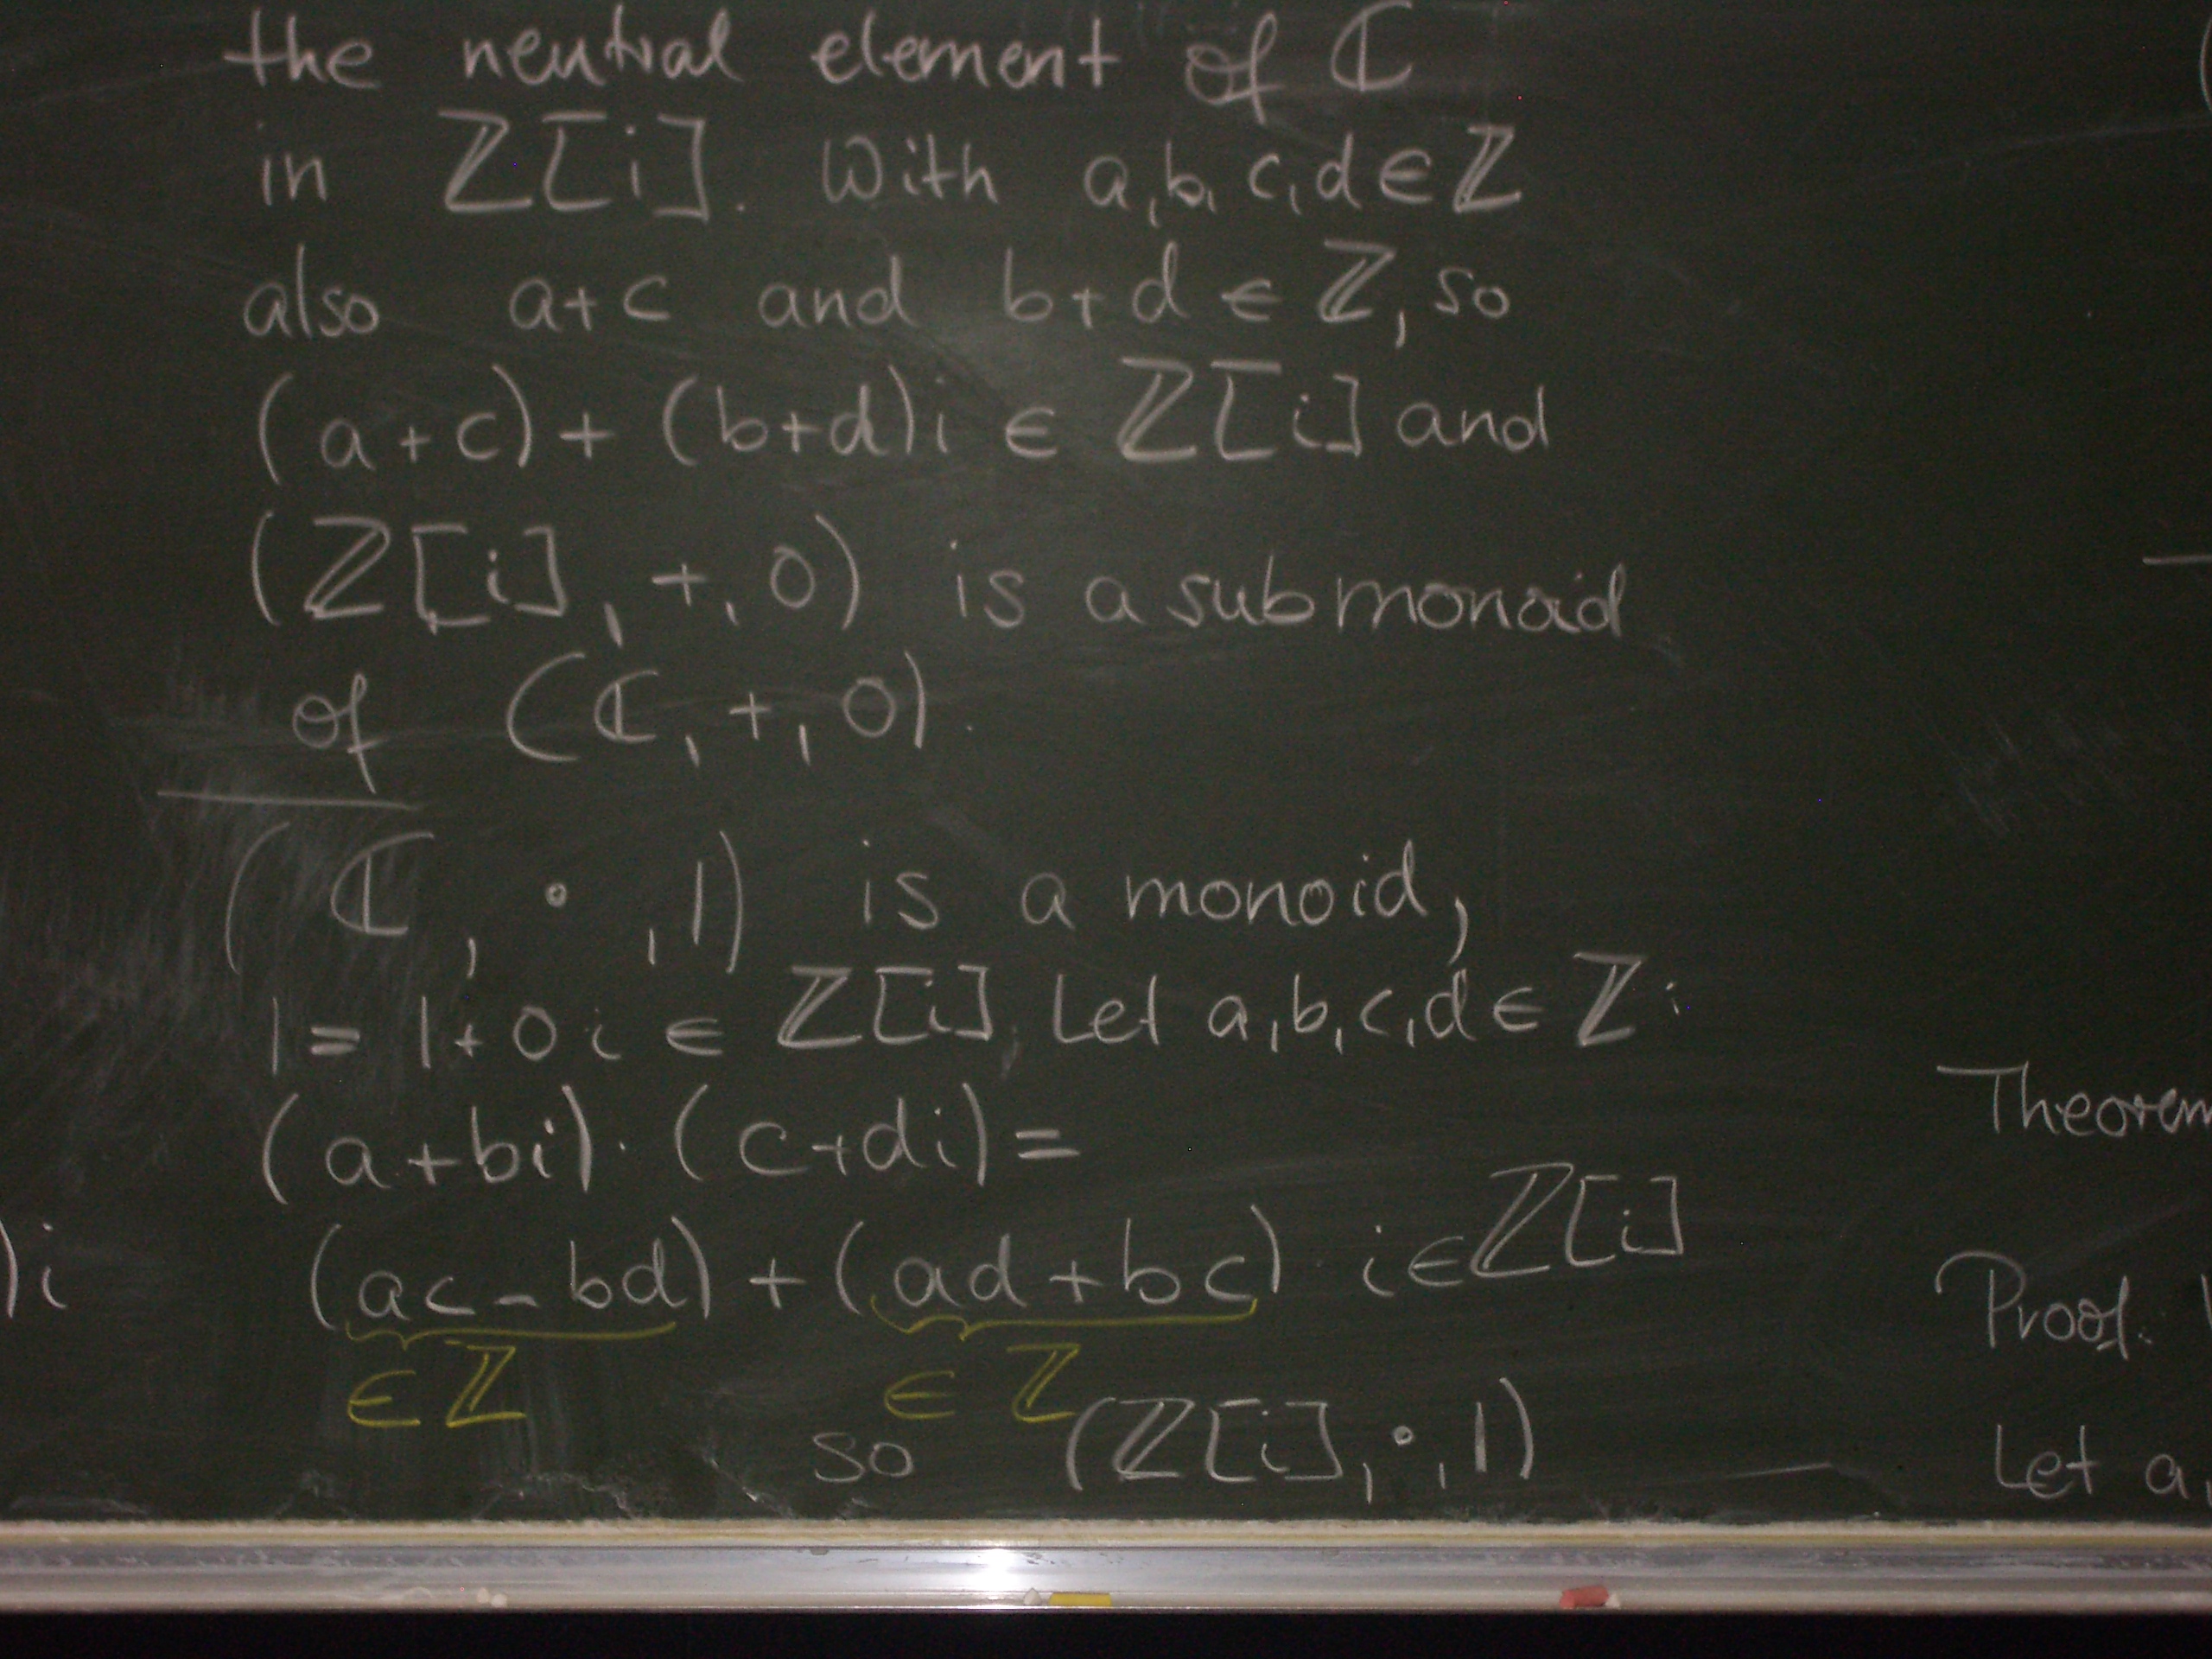 the neutral element of ℂ
in ℤ[i]. With a, b, c, d ∈ ℤ
also a+c and b+d ∈ ℤ, so
(a+c) + (b+d)i ∈ ℤ[i] and
(ℤ[i], +, 0) is a submonoid
of (ℂ, +, 0).
(ℂ, ·, 1) is a monoid,
1 = 1+0i ∈ ℤ[i], Let a, b, c, d ∈ ℤ:
(a+bi)·(c+di) =
(ac-bd) + (ad+bc) i ∈ ℤ[i]
∈ ℤ ∈ ℤ
so (ℤ[i], ·, 1)
)i
Theorem
Proof.
Let a,